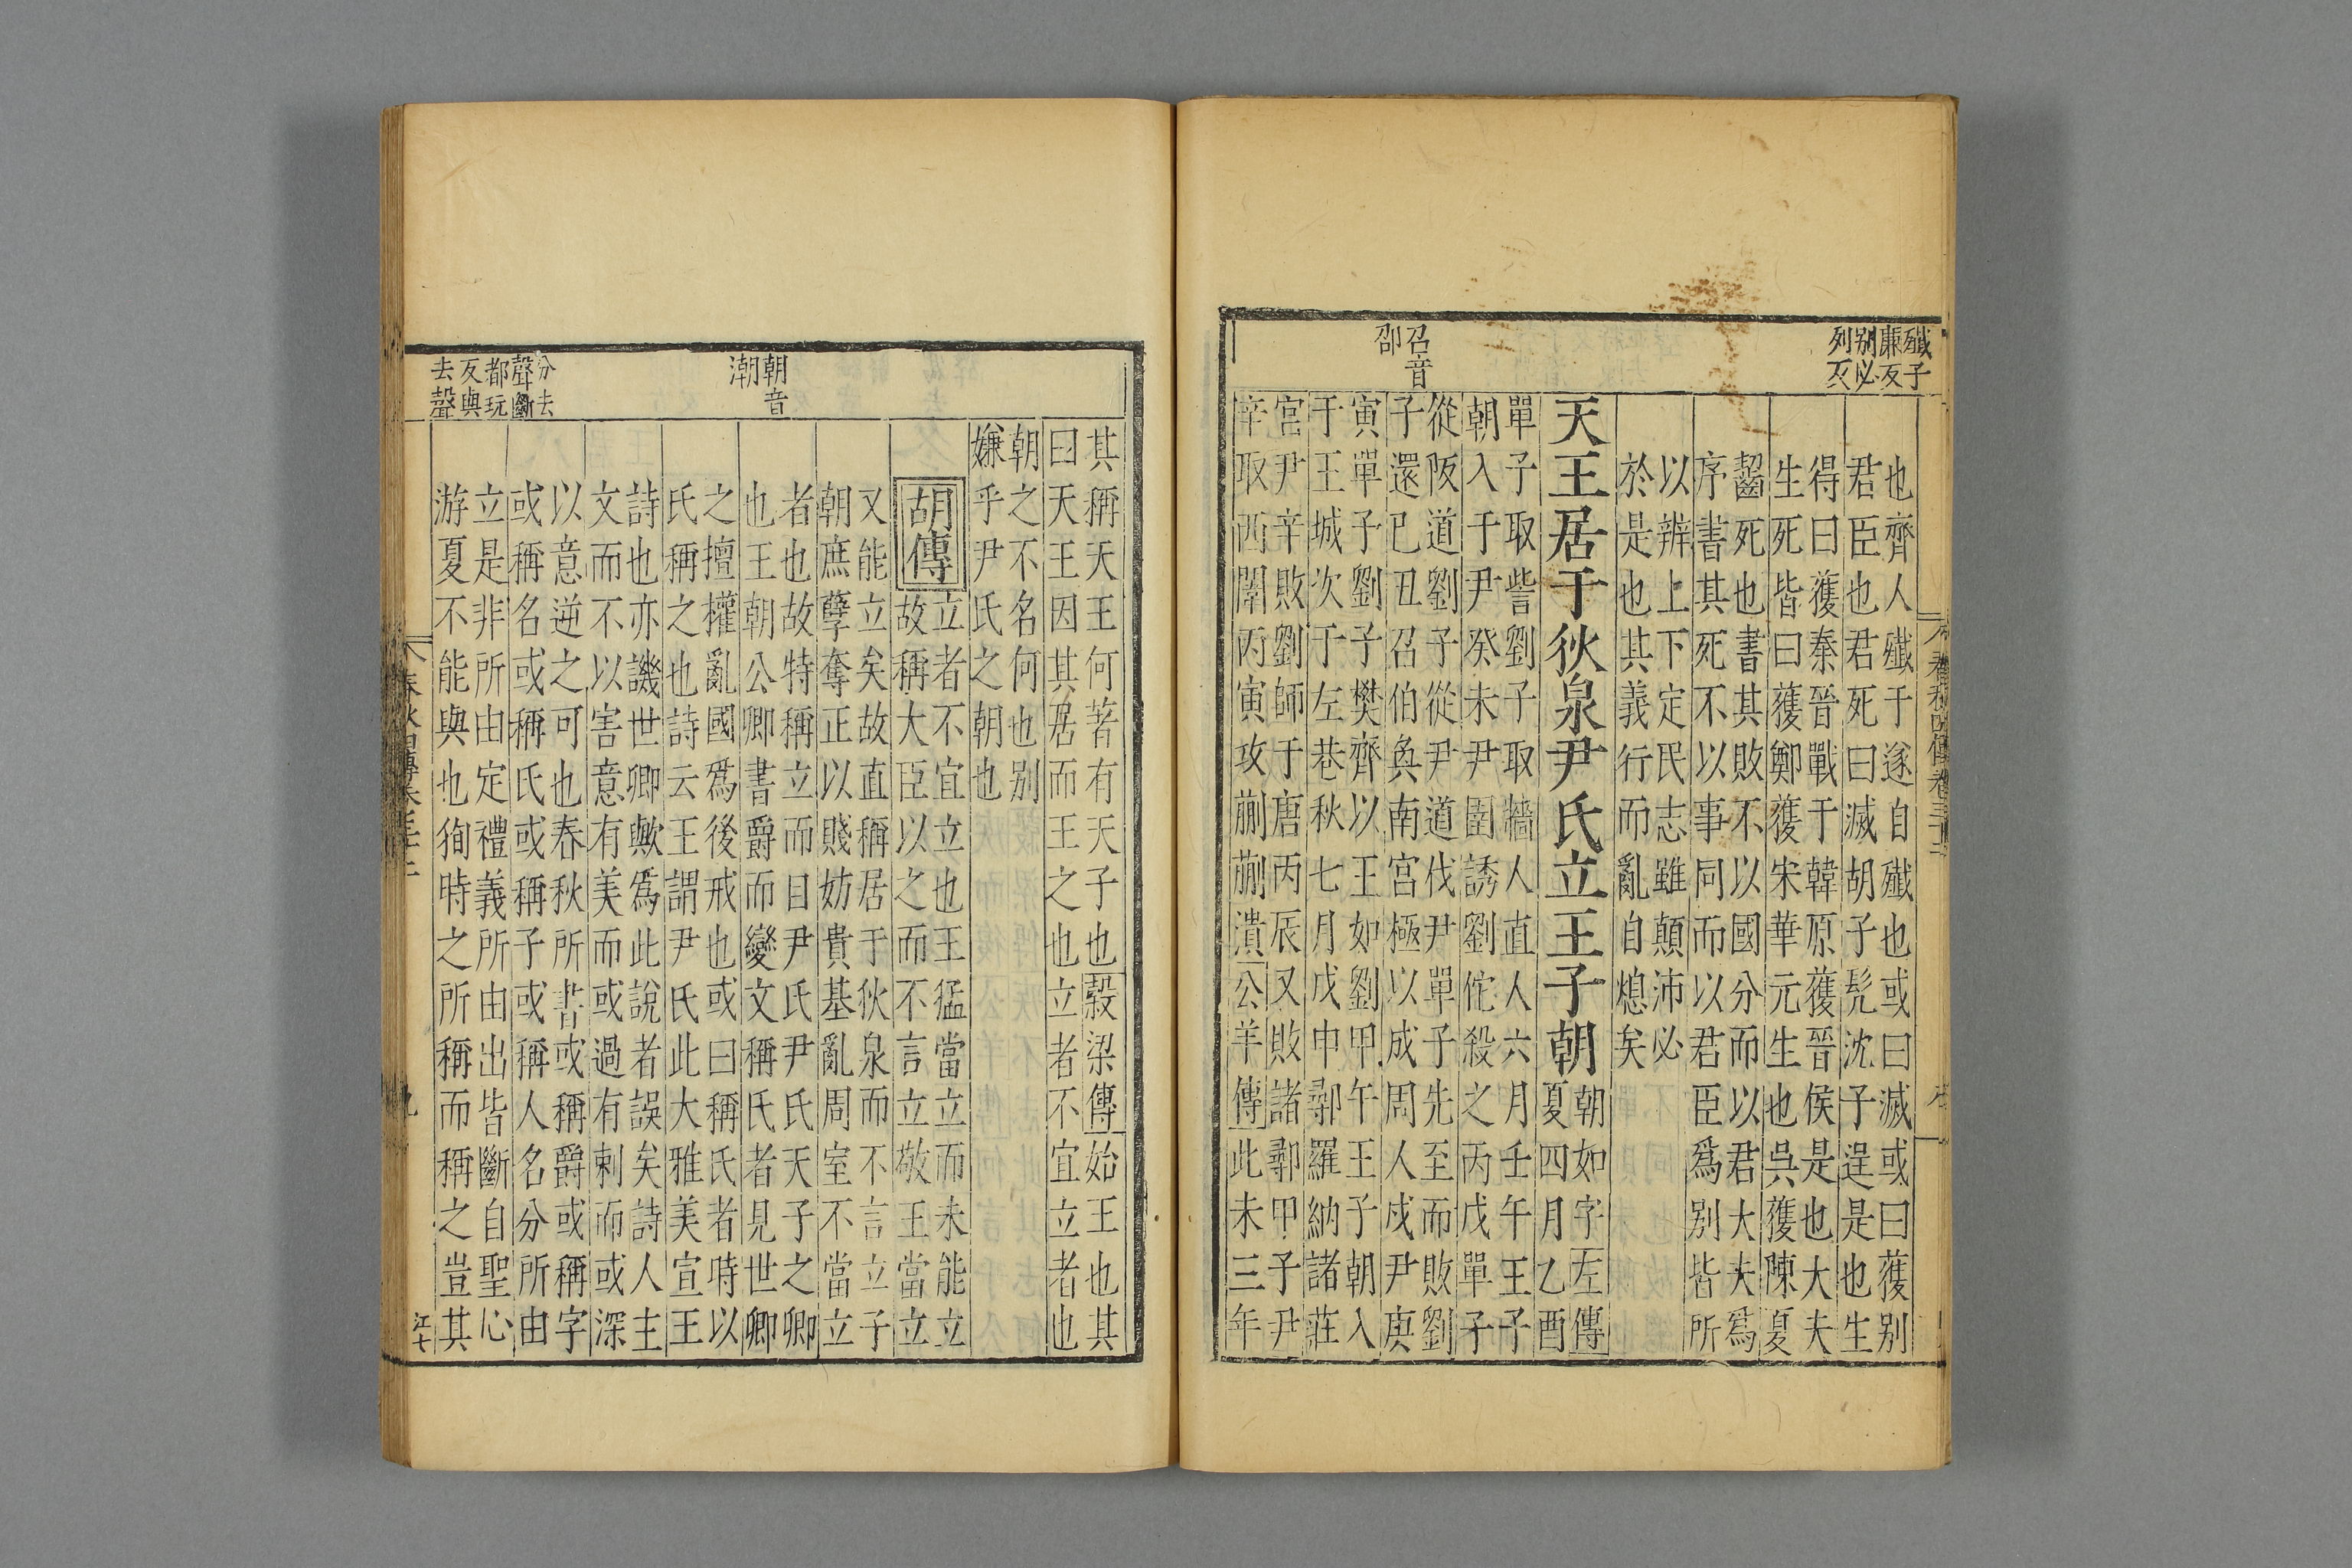 殱子
廉反
别必
列反
召音
邵
也齊人殱于遂自殱也或曰滅或曰獲别
君臣也君死曰滅胡子髡沈子逞是也生
得曰獲秦晉戰于韓原獲晉侯是也大夫
生死皆曰獲鄭獲宋華元生也吳獲陳夏
齧死也書其敗不以國分而以君大夫爲
序書其死不以事同而以君臣爲别皆所
以辨上下定民志雖顛沛必
於是也其義行而亂自熄矣
天王居于狄泉尹氏立王子朝
朝如字左傳
夏四月乙酉
單子取訾劉子取牆人直人六月壬午王子
朝入于尹癸未尹圉誘劉佗殺之丙戌單子
從阪道劉子從尹道伐尹單子先至而敗劉
子還已丑召伯奐南宮極以成周人戍尹庚
寅單子劉子樊齊以王如劉甲午王子朝入
于王城次于左巷秋七月戊申鄩羅納諸莊
宮尹辛敗劉師于唐丙辰又敗諸鄩甲子尹
辛取西闈丙寅攻蒯蒯潰公羊傳此未三年
朝音
潮
分去
聲斷
都玩
反與
去聲
其稱天王何著有天子也穀梁傳始王也其
曰天王因其居而王之也立者不宜立者也
朝之不名何也别
嫌乎尹氏之朝也
胡傳
立者不宜立也王猛當立而未能立
故稱大臣以之而不言立敬王當立
又能立矣故直稱居于狄泉而不言立子
朝庶孽奪正以賤妨貴基亂周室不當立
者也故特稱立而目尹氏尹氏天子之卿
也王朝公卿書爵而變文稱氏者見世卿
之擅權亂國爲後戒也或曰稱氏者時以
氏稱之也詩云王謂尹氏此大雅美宣王
詩也亦譏世卿歟爲此說者誤矣詩人主
文而不以害意有美而或過有刺而或深
以意逆之可也春秋所書或稱爵或稱字
或稱名或稱氏或稱子或稱人名分所由
立是非所由定禮義所由出皆斷自聖心
游夏不能與也徇時之所稱而稱之豈其